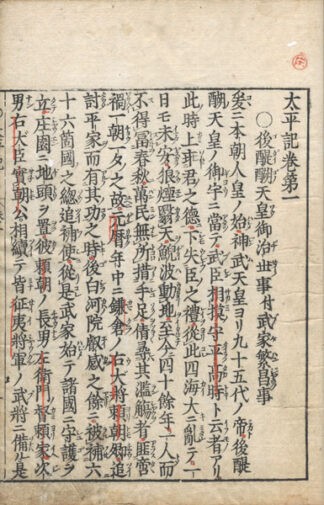 太平記巻第一
○後醍醐天皇御治世事付武家繁昌事
爰ニ本朝人皇ノ始神武天皇ヨリ九十五代ノ帝後醍
醐天皇ノ御宇ニ當テ武臣相摸守平高時ト云者アリ
此時上乖君之德下失臣之禮從此四海大ニ亂テ一
日モ未安狼煙翳天鯢波動地至今四十餘年一人而
不得富春秋萬民無所措手足倩尋其濫觴者匪啻
禍一朝一夕之故元曆年中ニ鎌倉ノ右大將賴朝卿追
討平家而有其功之時後白河院叡感之餘ニ被補六
十六箇國之總追補使從是武家始テ諸國ニ守護ヲ
立庄園ニ地頭ヲ置彼賴朝ノ長男左衛門督賴家次
男右大臣實朝公相續テ皆征夷將軍ノ武將ニ備ル是